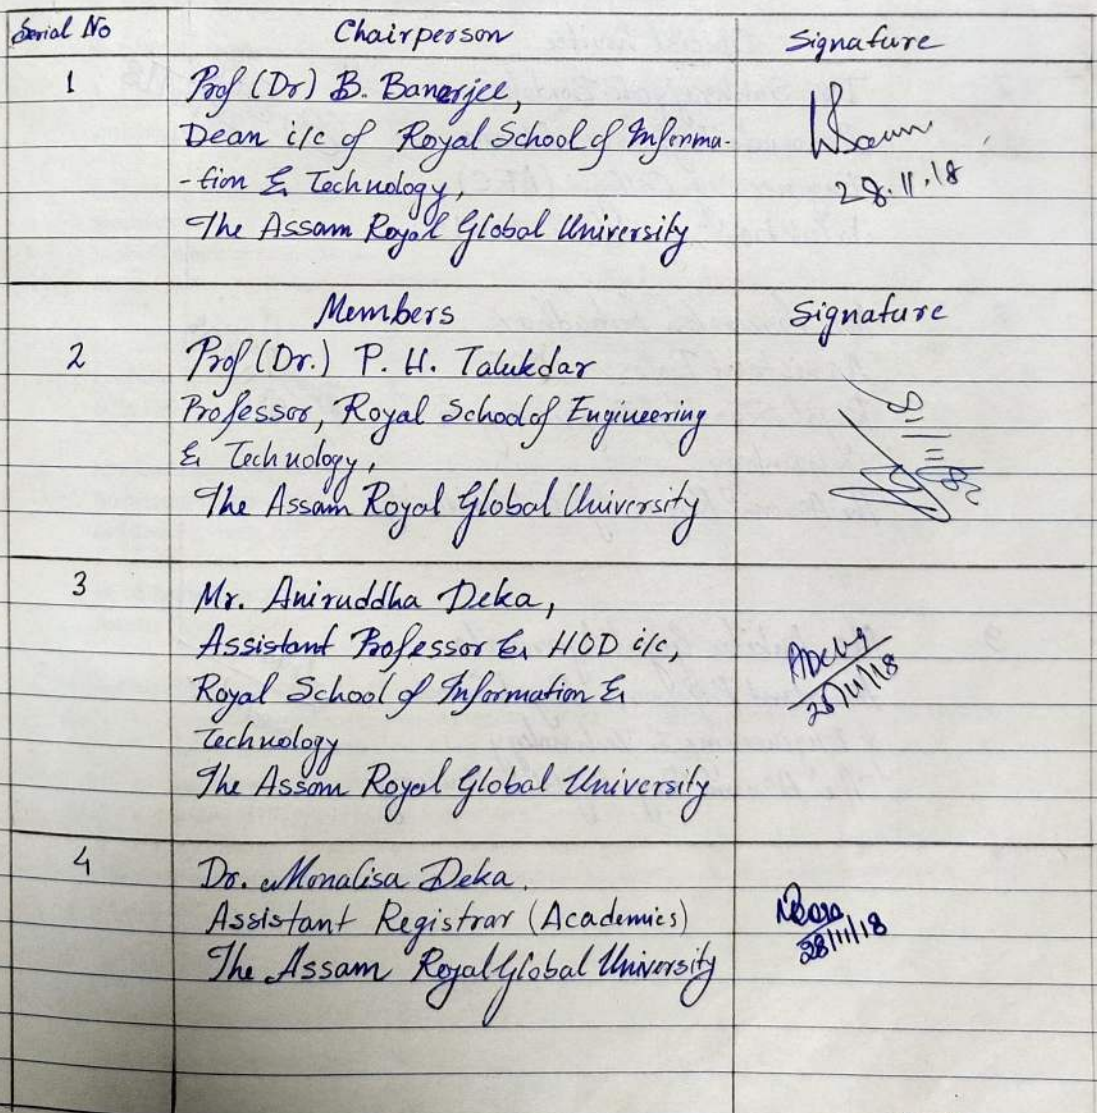 Serial No Chairperson Signature
1 Prof (Dr) B. Banerjee,
Dean i/c of Royal School of Informa-
-tion & Technology,
28.11.18
The Assam Royal Global University
Members Signature
2 Prof (Dr.) P. H. Talukdar
Professor, Royal School of Engineering
& Technology,
The Assam Royal Global University
3 Mr. Aniruddha Deka,
Assistant Professor & HOD i/c,
Royal School of Information &
28/11/18
Technology
The Assam Royal Global University
4 Dr. Monalisa Deka.
Assistant Registrar (Academics)
28/11/18
The Assam Royal Global University